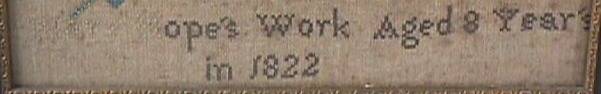 ope's Work Aged 8 Year's
in 1822